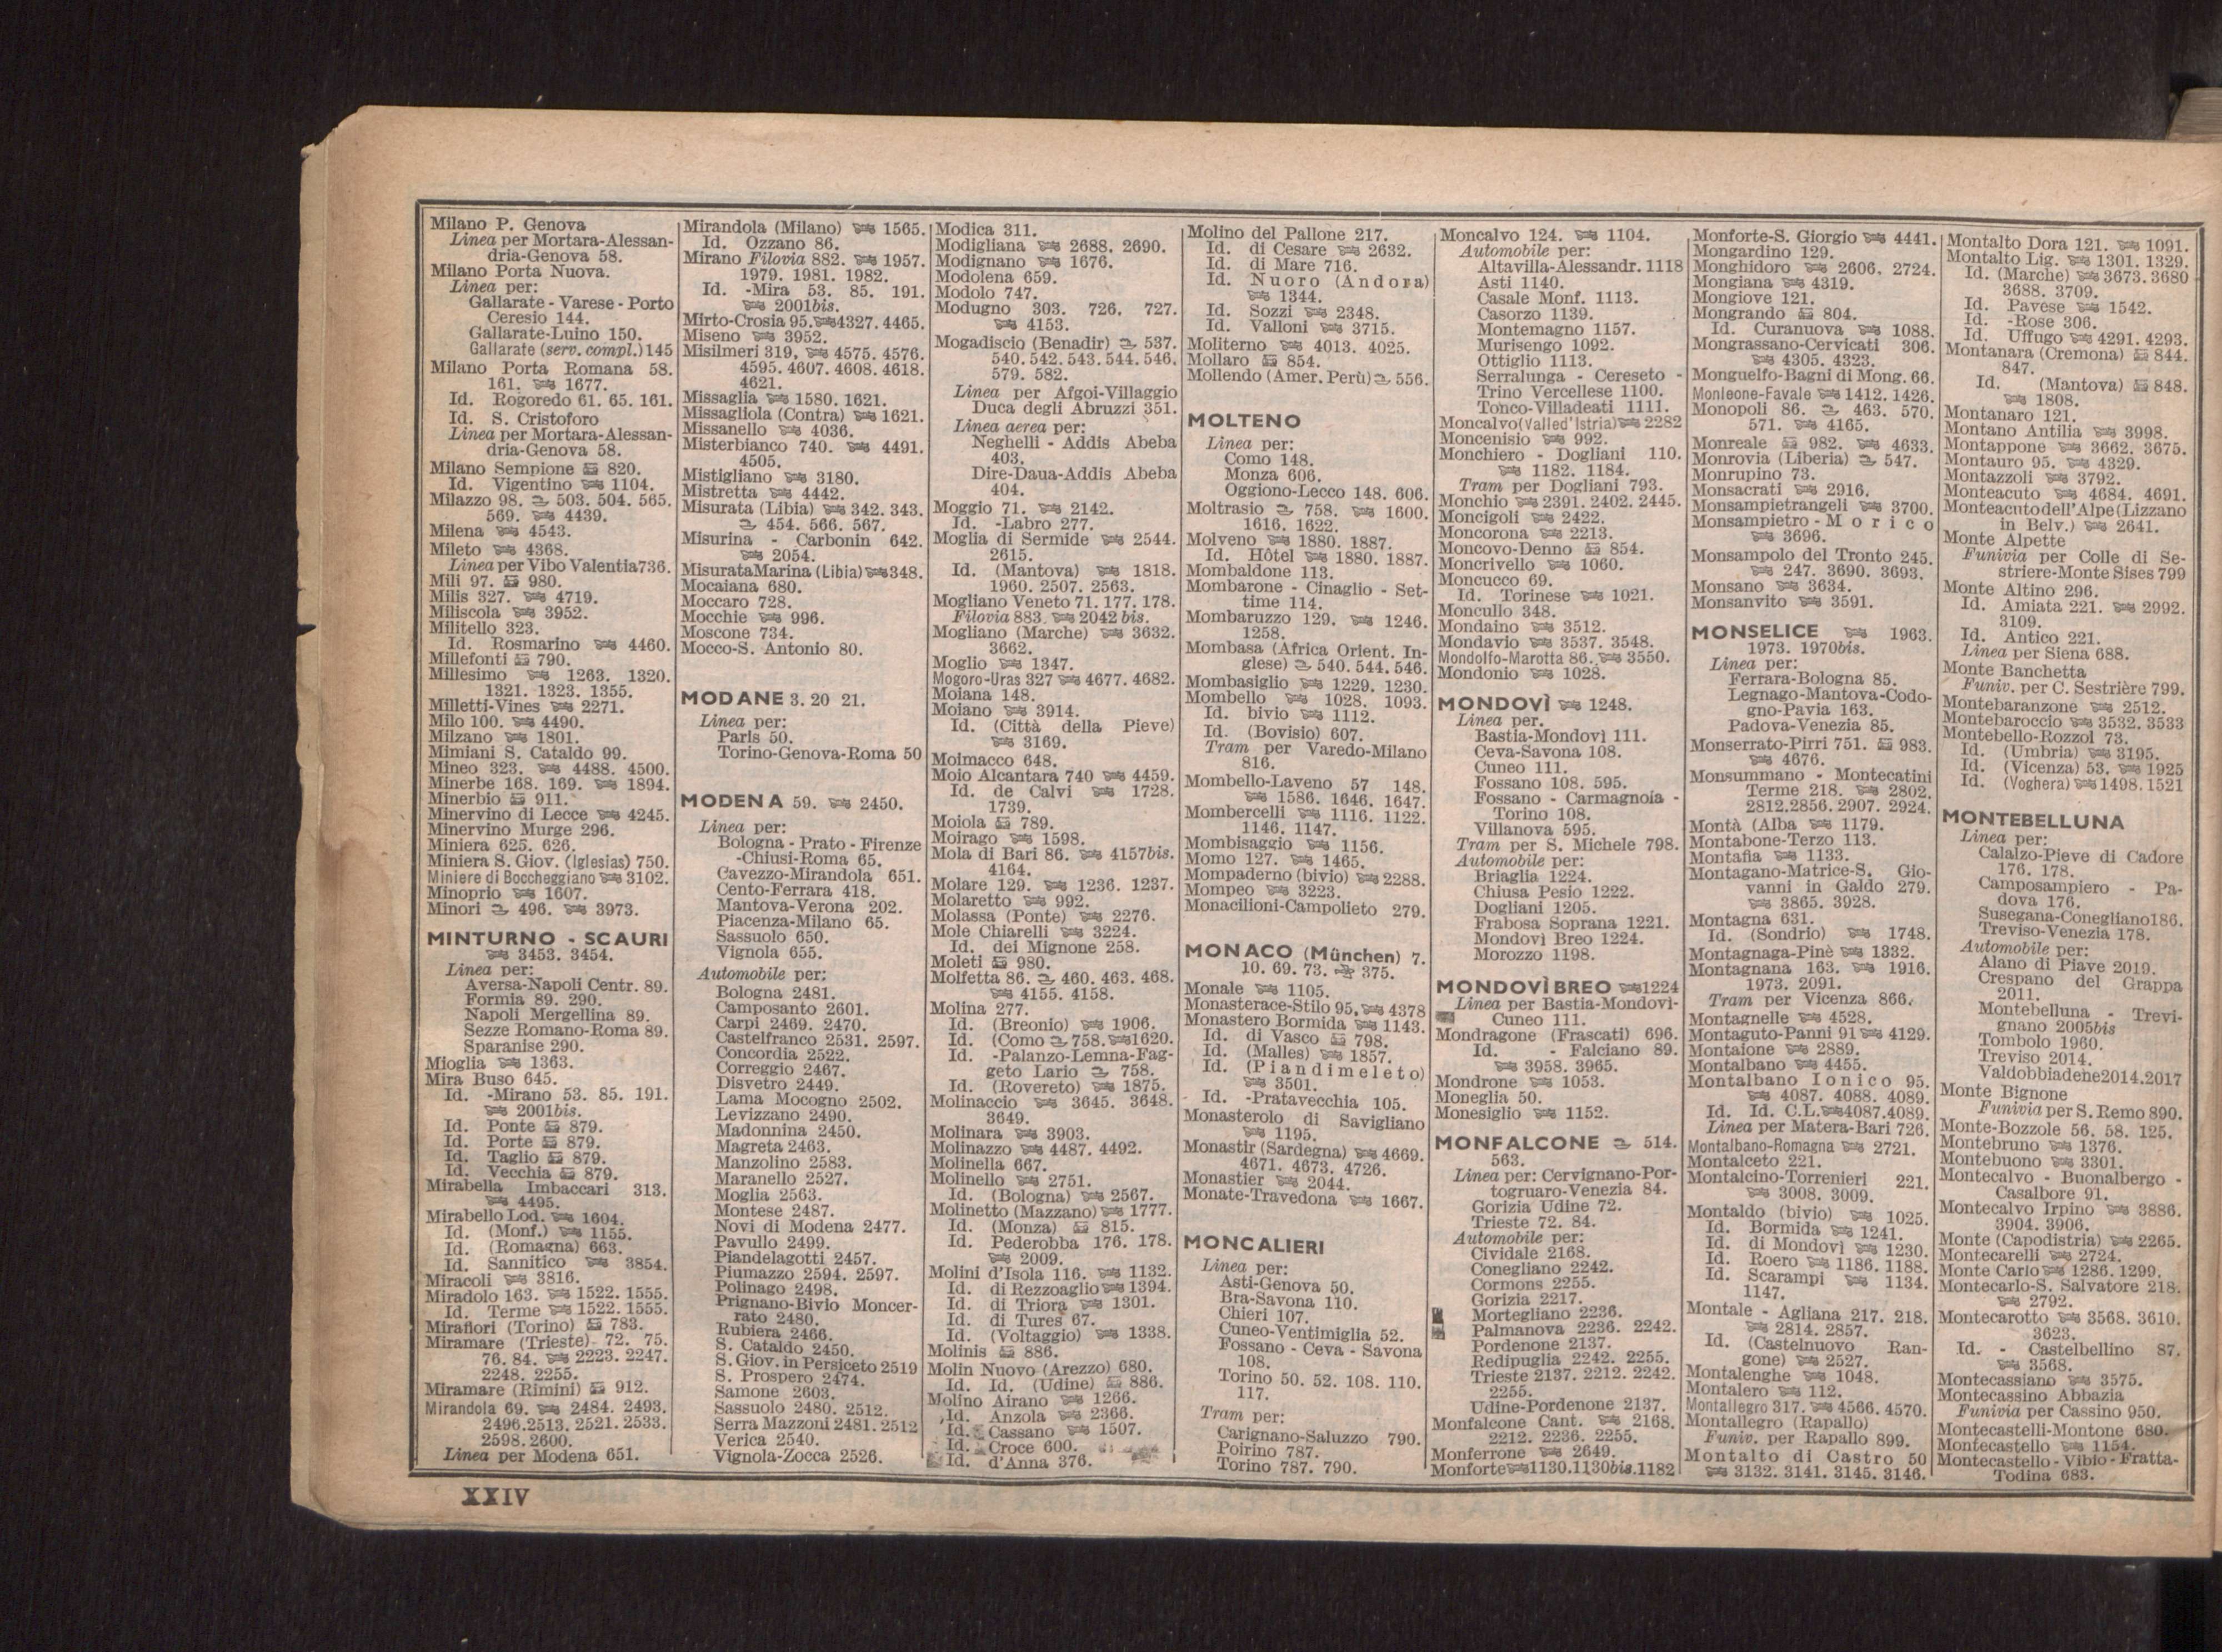 Milano P. Genova
Linea per Mortara-Alessan-
dria-Genova 58.
Milano Porta Nuova.
Linea per:
Gallarate - Varese - Porto
Ceresio 144.
Gallarate-Luino 150.
Gallarate (serv. compl.) 145
Milano Porta Romana 58.
161. 1677.
Id. Rogoredo 61. 65. 161.
Id. S. Cristoforo
Linea per Mortara-Alessan-
dria-Genova 58.
Milano Sempione 820.
Id. Vigentino 1104.
Milazzo 98. 503. 504. 565.
569. 4439.
Milena 4543.
Mileto 4368.
Linea per Vibo Valentia 736.
Mili 97. 980.
Milis 327. 4719.
Miliscola 3952.
Militello 323.
Id. Rosmarino 4460.
Millefonti 790.
Millesimo 1263. 1320.
1321. 1323. 1355.
Milletti-Vines 2271.
Milo 100. 4490.
Milzano 1801.
Mimiani S. Cataldo 99.
Mineo 323. 4488. 4500.
Minerbe 168. 169. 1894.
Minerbio 911.
Minervino di Lecce 4245.
Minervino Murge 296.
Miniera 625. 626.
Miniera S. Giov. (Iglesias) 750.
Miniere di Boccheggiano 3102.
Minoprio 1607.
Minori 496. 3973.
MINTURNO - SCAURI
3453. 3454.
Linea per:
Aversa-Napoli Centr. 89.
Formia 89. 290.
Napoli Mergellina 89.
Sezze Romano-Roma 89.
Sparanise 290.
Mioglia 1363.
Mira Buso 645.
Id. -Mirano 53. 85. 191.
2001bis.
Id. Ponte 879.
Id. Porte 879.
Id. Taglio 879.
Id. Vecchia 879.
Mirabella Imbaccari 313.
4495.
Mirabello Lod. 1604.
Id. (Monf.) 1155.
Id. (Romagna) 663.
Id. Sannitico 3854.
Miracoli 3816.
Miradolo 163. 1522. 1555.
Id. Terme 1522. 1555.
Mirafiori (Torino) 783.
Miramare (Trieste) 72. 75.
76. 84. 2223. 2247.
2248. 2255.
Miramare (Rimini) 912.
Mirandola 69. 2484. 2493.
2496. 2513. 2521. 2533.
2598. 2600.
Linea per Modena 651.
Mirandola (Milano) 1565.
Id. Ozzano 86.
Mirano Filovia 882. 1957.
1979. 1981. 1982.
Id. -Mira 53. 85. 191.
2001bis.
Mirto-Crosia 95. 4327. 4465.
Miseno 3952.
Misilmeri 319, 4575. 4576.
4595. 4607. 4608. 4618.
4621.
Missaglia 1580. 1621.
Missagliola (Contra) 1621.
Missanello 4036.
Misterbianco 740. 4491.
4505.
Mistigliano 3180.
Mistretta 4442.
Misurata (Libia) 342. 343.
454. 566. 567.
Misurina - Carbonin 642.
2054.
Misurata Marina (Libia) 348.
Mocaiana 680.
Moccaro 728.
Mocchie 996.
Moscone 734.
Mocco-S. Antonio 80.
MODANE 3. 20 21.
Linea per:
Paris 50.
Torino-Genova-Roma 50
MODENA 59. 2450.
Linea per:
Bologna - Prato - Firenze
-Chiusi-Roma 65.
Cavezzo-Mirandola 651.
Cento-Ferrara 418.
Mantova-Verona 202.
Piacenza-Milano 65.
Sassuolo 650.
Vignola 655.
Automobile per:
Bologna 2481.
Camposanto 2601.
Carpi 2469. 2470.
Castelfranco 2531. 2597.
Concordia 2522.
Correggio 2467.
Disvetro 2449.
Lama Mocogno 2502.
Levizzano 2490.
Madonnina 2450.
Magreta 2463.
Manzolino 2583.
Maranello 2527.
Moglia 2563.
Montese 2487.
Novi di Modena 2477.
Pavullo 2499.
Piandelagotti 2457.
Piumazzo 2594. 2597.
Polinago 2498.
Prignano-Bivio Moncer-
rato 2480.
Rubiera 2466.
S. Cataldo 2450.
S. Giov. in Persiceto 2519
S. Prospero 2474.
Samone 2603.
Sassuolo 2480. 2512.
Serra Mazzoni 2481. 2512
Verica 2540.
Vignola-Zocca 2526.
Modica 311.
Modigliana 2688. 2690.
Modignano 1676.
Modolena 659.
Modolo 747.
Modugno 303. 726. 727.
4153.
Mogadiscio (Benadir) 537.
540. 542. 543. 544. 546.
579. 582.
Linea per Afgoi-Villaggio
Duca degli Abruzzi 351.
Linea aerea per:
Neghelli - Addis Abeba
403.
Dire-Daua-Addis Abeba
404.
Moggio 71. 2142.
Id. -Labro 277.
Moglia di Sermide 2544.
2615.
Id. (Mantova) 1818.
1960. 2507. 2563.
Mogliano Veneto 71. 177. 178.
Filovia 883. 2042 bis.
Mogliano (Marche) 3632.
3662.
Moglio 1347.
Mogoro-Uras 327 4677. 4682.
Moiana 148.
Moiano 3914.
Id. (Città della Pieve)
3169.
Moimacco 648.
Moio Alcantara 740 4459.
Id. de Calvi 1728.
1739.
Moiola 789.
Moirago 1598.
Mola di Bari 86. 4157bis.
4164.
Molare 129. 1236. 1237.
Molaretto 992.
Molassa (Ponte) 2276.
Mole Chiarelli 3224.
Id. dei Mignone 258.
Moleti 980.
Molfetta 86. 460. 463. 468.
4155. 4158.
Molina 277.
Id. (Breonio) 1906.
Id. (Como 758. 1620.
Id. -Palanzo-Lemna-Fag-
geto Lario 758.
Id. (Rovereto) 1875.
Molinaccio 3645. 3648.
3649.
Molinara 3903.
Molinazzo 4487. 4492.
Molinella 667.
Molinello 2751.
Id. (Bologna) 2567.
Molinetto (Mazzano) 1777.
Id. (Monza) 815.
Id. Pederobba 176. 178.
2009.
Molini d'Isola 116. 1132.
Id. di Rezzoaglio 1394.
Id. di Triora 1301.
Id. di Tures 67.
Id. (Voltaggio) 1338.
Molinis 886.
Molin Nuovo (Arezzo) 680.
Id. Id. (Udine) 886.
Molino Airano 1266.
Id. Anzola 2366.
Id. Cassano 1507.
Id. Croce 600.
Id. d'Anna 376.
Molino del Pallone 217.
Id. di Cesare 2632.
Id. di Mare 716.
Id. Nuoro (Andora)
1344.
Id. Sozzi 2348.
Id. Valloni 3715.
Moliterno 4013. 4025.
Mollaro 854.
Mollendo (Amer. Perù) 556.
MOLTENO
Linea per:
Como 148.
Monza 606.
Oggiono-Lecco 148. 606.
Moltrasio 758. 1600.
1616. 1622.
Molveno 1880. 1887.
Id. Hôtel 1880. 1887.
Mombaldone 113.
Mombarone - Cinaglio - Set-
time 114.
Mombaruzzo 129. 1246.
1258.
Mombasa (Africa Orient. In-
glese) 540. 544. 546.
Mombasiglio 1229. 1230.
Mombello 1028. 1093.
Id. bivio 1112.
Id. (Bovisio) 607.
Tram per Varedo-Milano
816.
Mombello-Laveno 57 148.
1586. 1646. 1647.
Mombercelli 1116. 1122.
1146. 1147.
Mombisaggio 1156.
Momo 127. 1465.
Mompaderno (bivio) 2288.
Mompeo 3223.
Monacilioni-Campolieto 279.
MONACO (München) 7.
10. 69. 73. 375.
Monale 1105.
Monasterace-Stilo 95. 4378
Monastero Bormida 1143.
Id. di Vasco 798.
Id. (Malles) 1857.
Id. (Piandimeleto)
3501.
Id. -Pratavecchia 105.
Monasterolo di Savigliano
1195.
Monastir (Sardegna) 4669.
4671. 4673. 4726.
Monastier 2044.
Monate-Travedona 1667.
MONCALIERI
Linea per:
Asti-Genova 50.
Bra-Savona 110.
Chieri 107.
Cuneo-Ventimiglia 52.
Fossano - Ceva - Savona
108.
Torino 50. 52. 108. 110.
117.
Tram per:
Carignano-Saluzzo 790.
Poirino 787.
Torino 787. 790.
Moncalvo 124. 1104.
Automobile per:
Altavilla-Alessandr. 1118
Asti 1140.
Casale Monf. 1113.
Casorzo 1139.
Montemagno 1157.
Murisengo 1092.
Ottiglio 1113.
Serralunga - Cereseto -
Trino Vercellese 1100.
Tonco-Villadeati 1111.
Moncalvo (Valle d'Istria) 2282
Moncenisio 992.
Monchiero - Dogliani 110.
1182. 1184.
Tram per Dogliani 793.
Monchio 2391. 2402. 2445.
Moncigoli 2422.
Moncorona 2213.
Moncovo-Denno 854.
Moncrivello 1060.
Moncucco 69.
Id. Torinese 1021.
Moncullo 348.
Mondaino 3512.
Mondavio 3537. 3548.
Mondolfo-Marotta 86. 3550.
Mondonio 1028.
MONDOVÌ 1248.
Linea per.
Bastia-Mondovì 111.
Ceva-Savona 108.
Cuneo 111.
Fossano 108. 595.
Fossano - Carmagnola -
Torino 108.
Villanova 595.
Tram per S. Michele 798.
Automobile per:
Briaglia 1224.
Chiusa Pesio 1222.
Dogliani 1205.
Frabosa Soprana 1221.
Mondovì Breo 1224.
Morozzo 1198.
MONDOVÌ BREO 1224
Linea per Bastia-Mondovì-
Cuneo 111.
Mondragone (Frascati) 696.
Id. - Falciano 89.
3958. 3965.
Mondrone 1053.
Moneglia 50.
Monesiglio 1152.
MONFALCONE 514.
563.
Linea per: Cervignano-Por-
togruaro-Venezia 84.
Gorizia Udine 72.
Trieste 72. 84.
Automobile per:
Cividale 2168.
Conegliano 2242.
Cormons 2255.
Gorizia 2217.
Mortegliano 2236.
Palmanova 2236. 2242.
Pordenone 2137.
Redipuglia 2242. 2255.
Trieste 2137. 2212. 2242.
2255.
Udine-Pordenone 2137.
Monfalcone Cant. 2168.
2212. 2236. 2255.
Monferrone 2649.
Monforte 1130. 1130bis. 1182
Monforte-S. Giorgio 4441.
Mongardino 129.
Monghidoro 2606. 2724.
Mongiana 4319.
Mongiove 121.
Mongrando 804.
Id. Curanuova 1088.
Mongrassano-Cervicati 306.
4305. 4323.
Monguelfo-Bagni di Mong. 66.
Monleone-Favale 1412. 1426.
Monopoli 86. 463. 570.
571. 4165.
Monreale 982. 4633.
Monrovia (Liberia) 547.
Monrupino 73.
Monsacrati 2916.
Monsampietrangeli 3700.
Monsampietro - Morico
3696.
Monsampolo del Tronto 245.
247. 3690. 3693.
Monsano 3634.
Monsanvito 3591.
MONSELICE 1963.
1973. 1970bis.
Linea per:
Ferrara-Bologna 85.
Legnago-Mantova-Codo-
gno-Pavia 163.
Padova-Venezia 85.
Monserrato-Pirri 751. 983.
4676.
Monsummano - Montecatini
Terme 218. 2802.
2812. 2856. 2907. 2924.
Montà (Alba 1179.
Montabone-Terzo 113.
Montafia 1133.
Montagano-Matrice-S. Gio-
vanni in Galdo 279.
3865. 3928.
Montagna 631.
Id. (Sondrio) 1748.
Montagnaga-Pinè 1332.
Montagnana 163. 1916.
1973. 2091.
Tram per Vicenza 866.
Montagnelle 4528.
Montaguto-Panni 91 4129.
Montaione 2889.
Montalbano 4455.
Montalbano Ionico 95.
4087. 4088. 4089.
Id. Id. C.L. 4087. 4089.
Linea per Matera-Bari 726.
Montalbano-Romagna 2721.
Montalceto 221.
Montalcino-Torrenieri 221.
3008. 3009.
Montaldo (bivio) 1025.
Id. Bormida 1241.
Id. di Mondovì 1230.
Id. Roero 1186. 1188.
Id. Scarampi 1134.
1147.
Montale - Agliana 217. 218.
2814. 2857.
Id. (Castelnuovo Ran-
gone) 2527.
Montalenghe 1048.
Montalero 112.
Montallegro 317. 4566. 4570.
Montallegro (Rapallo)
Funiv. per Rapallo 899.
Montalto di Castro 50
3132. 3141. 3145. 3146.
Montalto Dora 121. 1091.
Montalto Lig. 1301. 1329.
Id. (Marche) 3673. 3680
3688. 3709.
Id. Pavese 1542.
Id. -Rose 306.
Id. Uffugo 4291. 4293.
Montanara (Cremona) 844.
847.
Id. (Mantova) 848.
1808.
Montanaro 121.
Montano Antilia 3998.
Montappone 3662. 3675.
Montauro 95. 4329.
Montazzoli 3792.
Monteacuto 4684. 4691.
Monteacuto dell'Alpe (Lizzano
in Belv.) 2641.
Monte Alpette
Funivia per Colle di Se-
striere-Monte Sises 799
Monte Altino 296.
Id. Amiata 221. 2992.
3109.
Id. Antico 221.
Linea per Siena 688.
Monte Banchetta
Funiv. per C. Sestrière 799.
Montebaranzone 2512.
Montebaroccio 3532. 3533
Montebello-Rozzol 73.
Id. (Umbria) 3195.
Id. (Vicenza) 53. 1925
Id. (Voghera) 1498. 1521
MONTEBELLUNA
Linea per:
Calalzo-Pieve di Cadore
176. 178.
Camposampiero - Pa-
dova 176.
Susegana-Conegliano 186.
Treviso-Venezia 178.
Automobile per:
Alano di Piave 2019.
Crespano del Grappa
2011.
Montebelluna - Trevi-
gnano 2005bis
Tombolo 1960.
Treviso 2014.
Valdobbiadene 2014. 2017
Monte Bignone
Funivia per S. Remo 890.
Monte-Bozzole 56. 58. 125.
Montebruno 1376.
Montebuono 3301.
Montecalvo - Buonalbergo -
Casalbore 91.
Montecalvo Irpino 3886.
3904. 3906.
Monte (Capodistria) 2265.
Montecarelli 2724.
Monte Carlo 1286. 1299.
Montecarlo-S. Salvatore 218.
2792.
Montecarotto 3568. 3610.
3623.
Id. - Castelbellino 87.
3568.
Montecassiano 3575.
Montecassino Abbazia
Funivia per Cassino 950.
Montecastelli-Montone 680.
Montecastello 1154.
Montecastello - Vibio - Fratta-
Todina 683.
XXIV